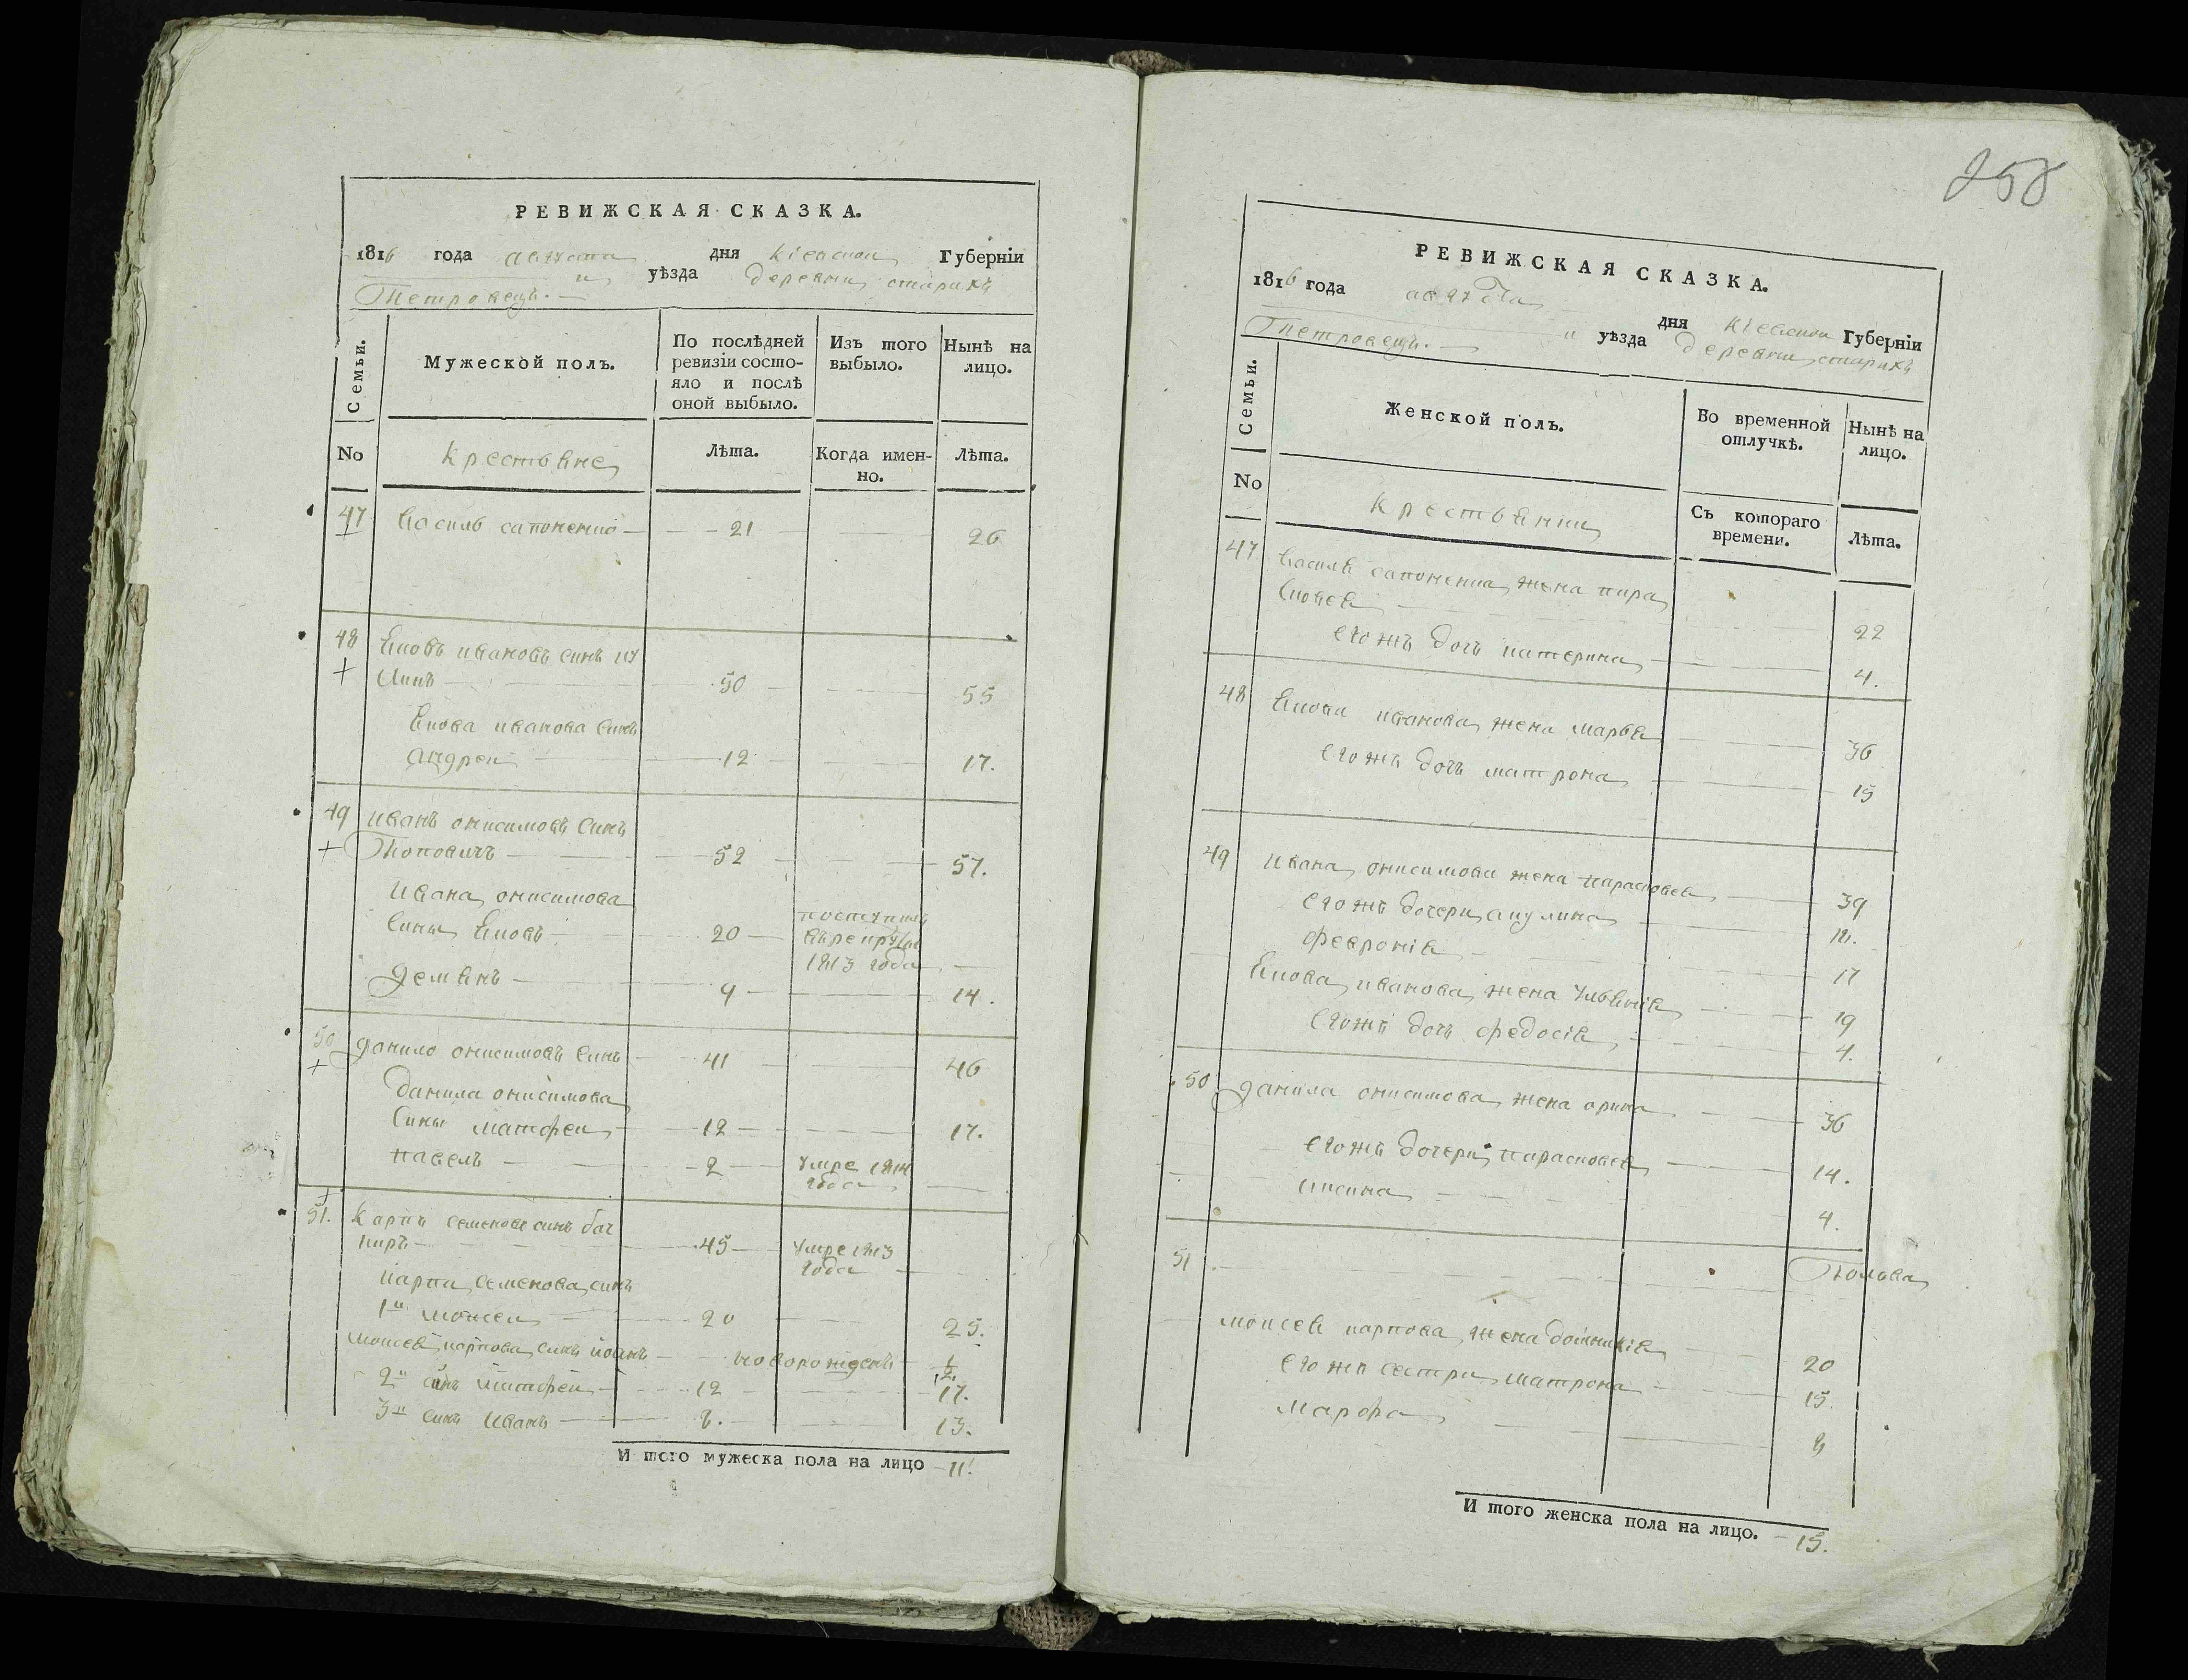 258
РЕВИЖСКАЯ СКАЗКА.
1816 года августа дня кіевской Губерніи
уѣзда деревни старихъ
Петровецъ.
Семьи.
Мужеской полъ.
По послѣдней ревизіи состо-
яло и послѣ
оной выбыло.
Изъ того выбыло.
Нынѣ на лицо.
No
крестьяне
Лѣта.
Когда имен-
но.
Лѣта.
47 василь сапоненко 21 26
48 Яковъ ивановъ синъ ку
ликъ 50 55
Якова иванова синъ
андреи 12 17.
49 иванъ онисимовъ синъ
Поповичъ 52 57.
ивана онисимова
сины Яковъ 20 поступилъ
врекруты
1813 года
демянъ 9 14.
50 данило онисимовъ синъ 41 46
данила онисимова
сины матфеи 12 17.
павелъ 2 умре 1814
года
51. карпъ семеновъ синъ
45 умре 1813
года
карпа семенова синъ
1й моисеи 20 25.
моисея карпова синъ новорожденъ 1/2
2й синъ матфеи 12 17.
3й синъ иванъ 8. 13.
И того мужеска пола на лицо 11.
РЕВИЖСКАЯ СКАЗКА.
1816 года августа дня кіевской Губерніи
уѣзда деревни старихъ
Петровецъ.
Семьи.
Женской полъ.
Во временной отлучкѣ.
Нынѣ на лицо.
No
крестьянки
Съ котораго времени.
Лѣта.
47 василя сапоненка жена пара
сковея 22
егожъ дочь катерина 4.
48 Якова иванова жена марья 36
егожъ дочь матрона 15
49 ивана онисимова жена парасковея 39
егожъ дочери акулина
февронія 17
Якова иванова жена ульянія 19
егожъ дочь федосія 4.
50 данила онисимова жена орина 36
егожъ дочери парасковея 14.
4.
51
моисея карпова жена домникія 20
его же сестри матрона 15
марфа 8
И того женска пола на лицо. 15.